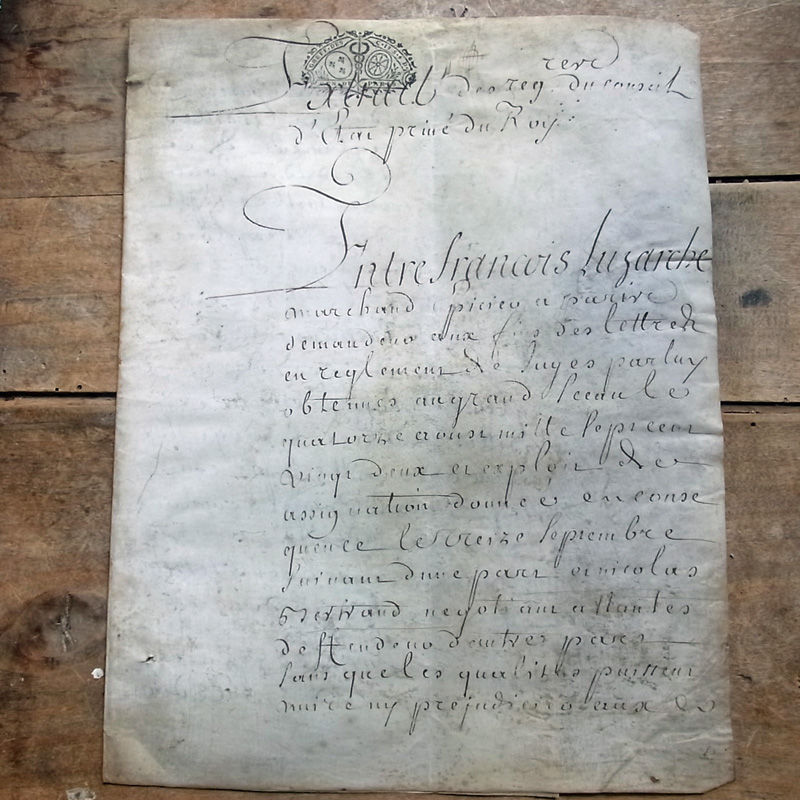 Extraict des reg. du conseil
d'Etat privé du Roy
Entre francois Luzarche
marchand epicier a
demandeur aux fins des lettres
en reglement de Juges par luy
obtenues au grand sceau le
quatorze aoust mille sept cent
vingt deux et exploit de
assignation donné en conse
quence le treize septembre
suivant dune part et nicolas
Bertrand negotiant a Nantes
deffendeur dautre part
sans que les qualittes puissent
nuire ny prejudicier aux